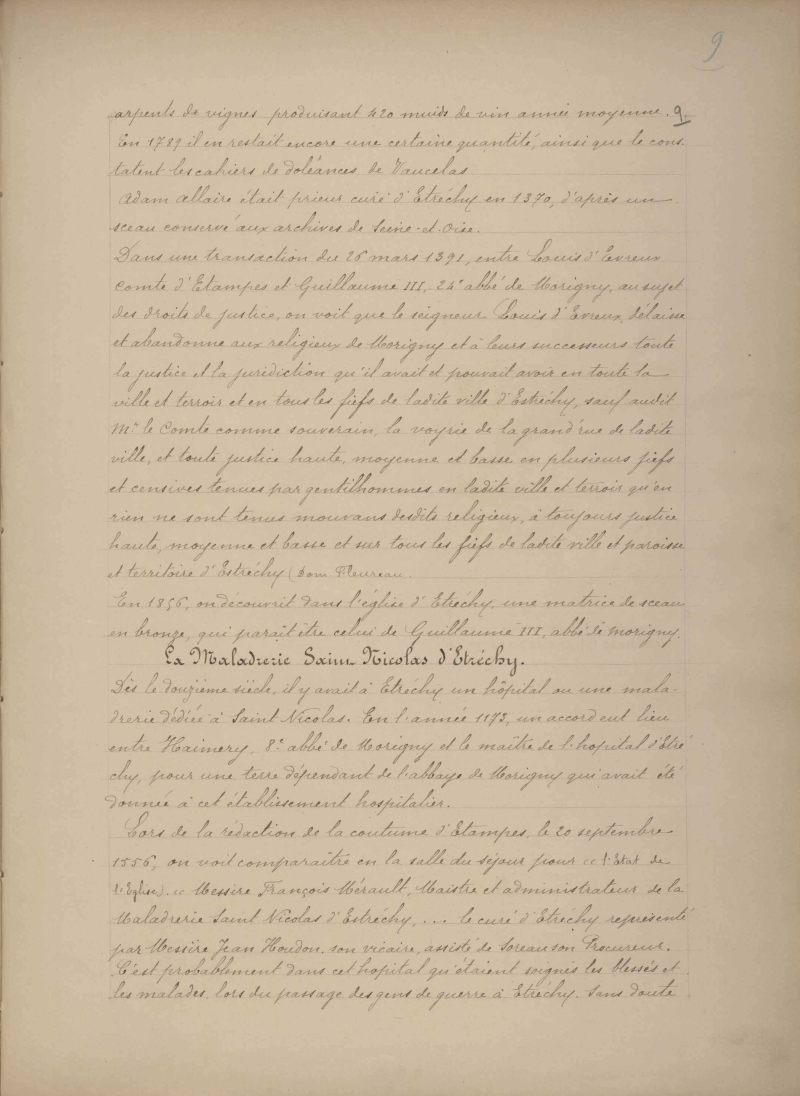 9
arpents de vignes produisant 420 muids de vin année moyenne. 9
En 1789 il en restait encore une certaine quantité, ainsi que le cons-
tatent les cahiers de doléances de Vaucelas
Adam Allaire était prieur curé d'Etréchy en 1370, d'après un
sceau conservé aux archives de Seine-et-Oise.
Dans une transaction du 26 mars 1391, entre Louis d'Evreux
comte d'Etampes et Guillaume III, 24e abbé de Morigny, au sujet
des droits de justice, on voit que le seigneur Louis d'Evreux, délaisse
et abandonne aux religieux de Morigny et à leurs successeurs toute
la justice et la juridiction qu'il avait et pouvait avoir en toute la
ville et terroir et en tous les fiefs de ladite ville d'Estréchy, sauf audit
Mr le Comte comme souverain, la voyrie de la grand'rue de ladite
ville, et toute justice haute, moyenne et basse en plusieurs fiefs
et censives tenues par gentilhommes en ladite ville et terroir qu'en
rien ne sont tenus mouvans desdits religieux, à toujours justice
haute, moyenne et basse et sur tous les fiefs de ladite ville et paroisse
et territoire d'Estréchy (Dom Fleureau.
En 1856, on découvrit dans l'église d'Etréchy, une matrice de sceau
en bronze, qui parait être celui de Guillaume III, abbé de Morigny.
La Maladrerie Saint Nicolas d'Etréchy.
Dès le douzième siècle, il y avait à Etréchy un hôpital ou une mala-
drerie dédiée à Saint Nicolas. En l'année 1173, un accord eut lieu
entre Haimery, 8e abbé de Morigny et le maître de l'hopital d'Etré
chy, pour une terre dépendant de l'abbaye de Morigny qui avait été
donnée à cet établissement hospitalier.
Lors de la rédaction de la coutume d'Etampes, le 20 septembre
1556, on voit comparaître en la salle du séjour pour « l'Etat de
l'Eglise). « Messire François Mérault, Maistre et administrateur de la
Maladrerie Saint Nicolas d'Estréchy, ... le curé d'Etréchy représenté
par Messire Jean Houdon, son vicaire, assisté de Soreau son Procureur.
C'est probablement dans cet hopital qu'étaient soignés les blessés et
les malades, lors du passage des gens de guerre à Etréchy. Sans doute